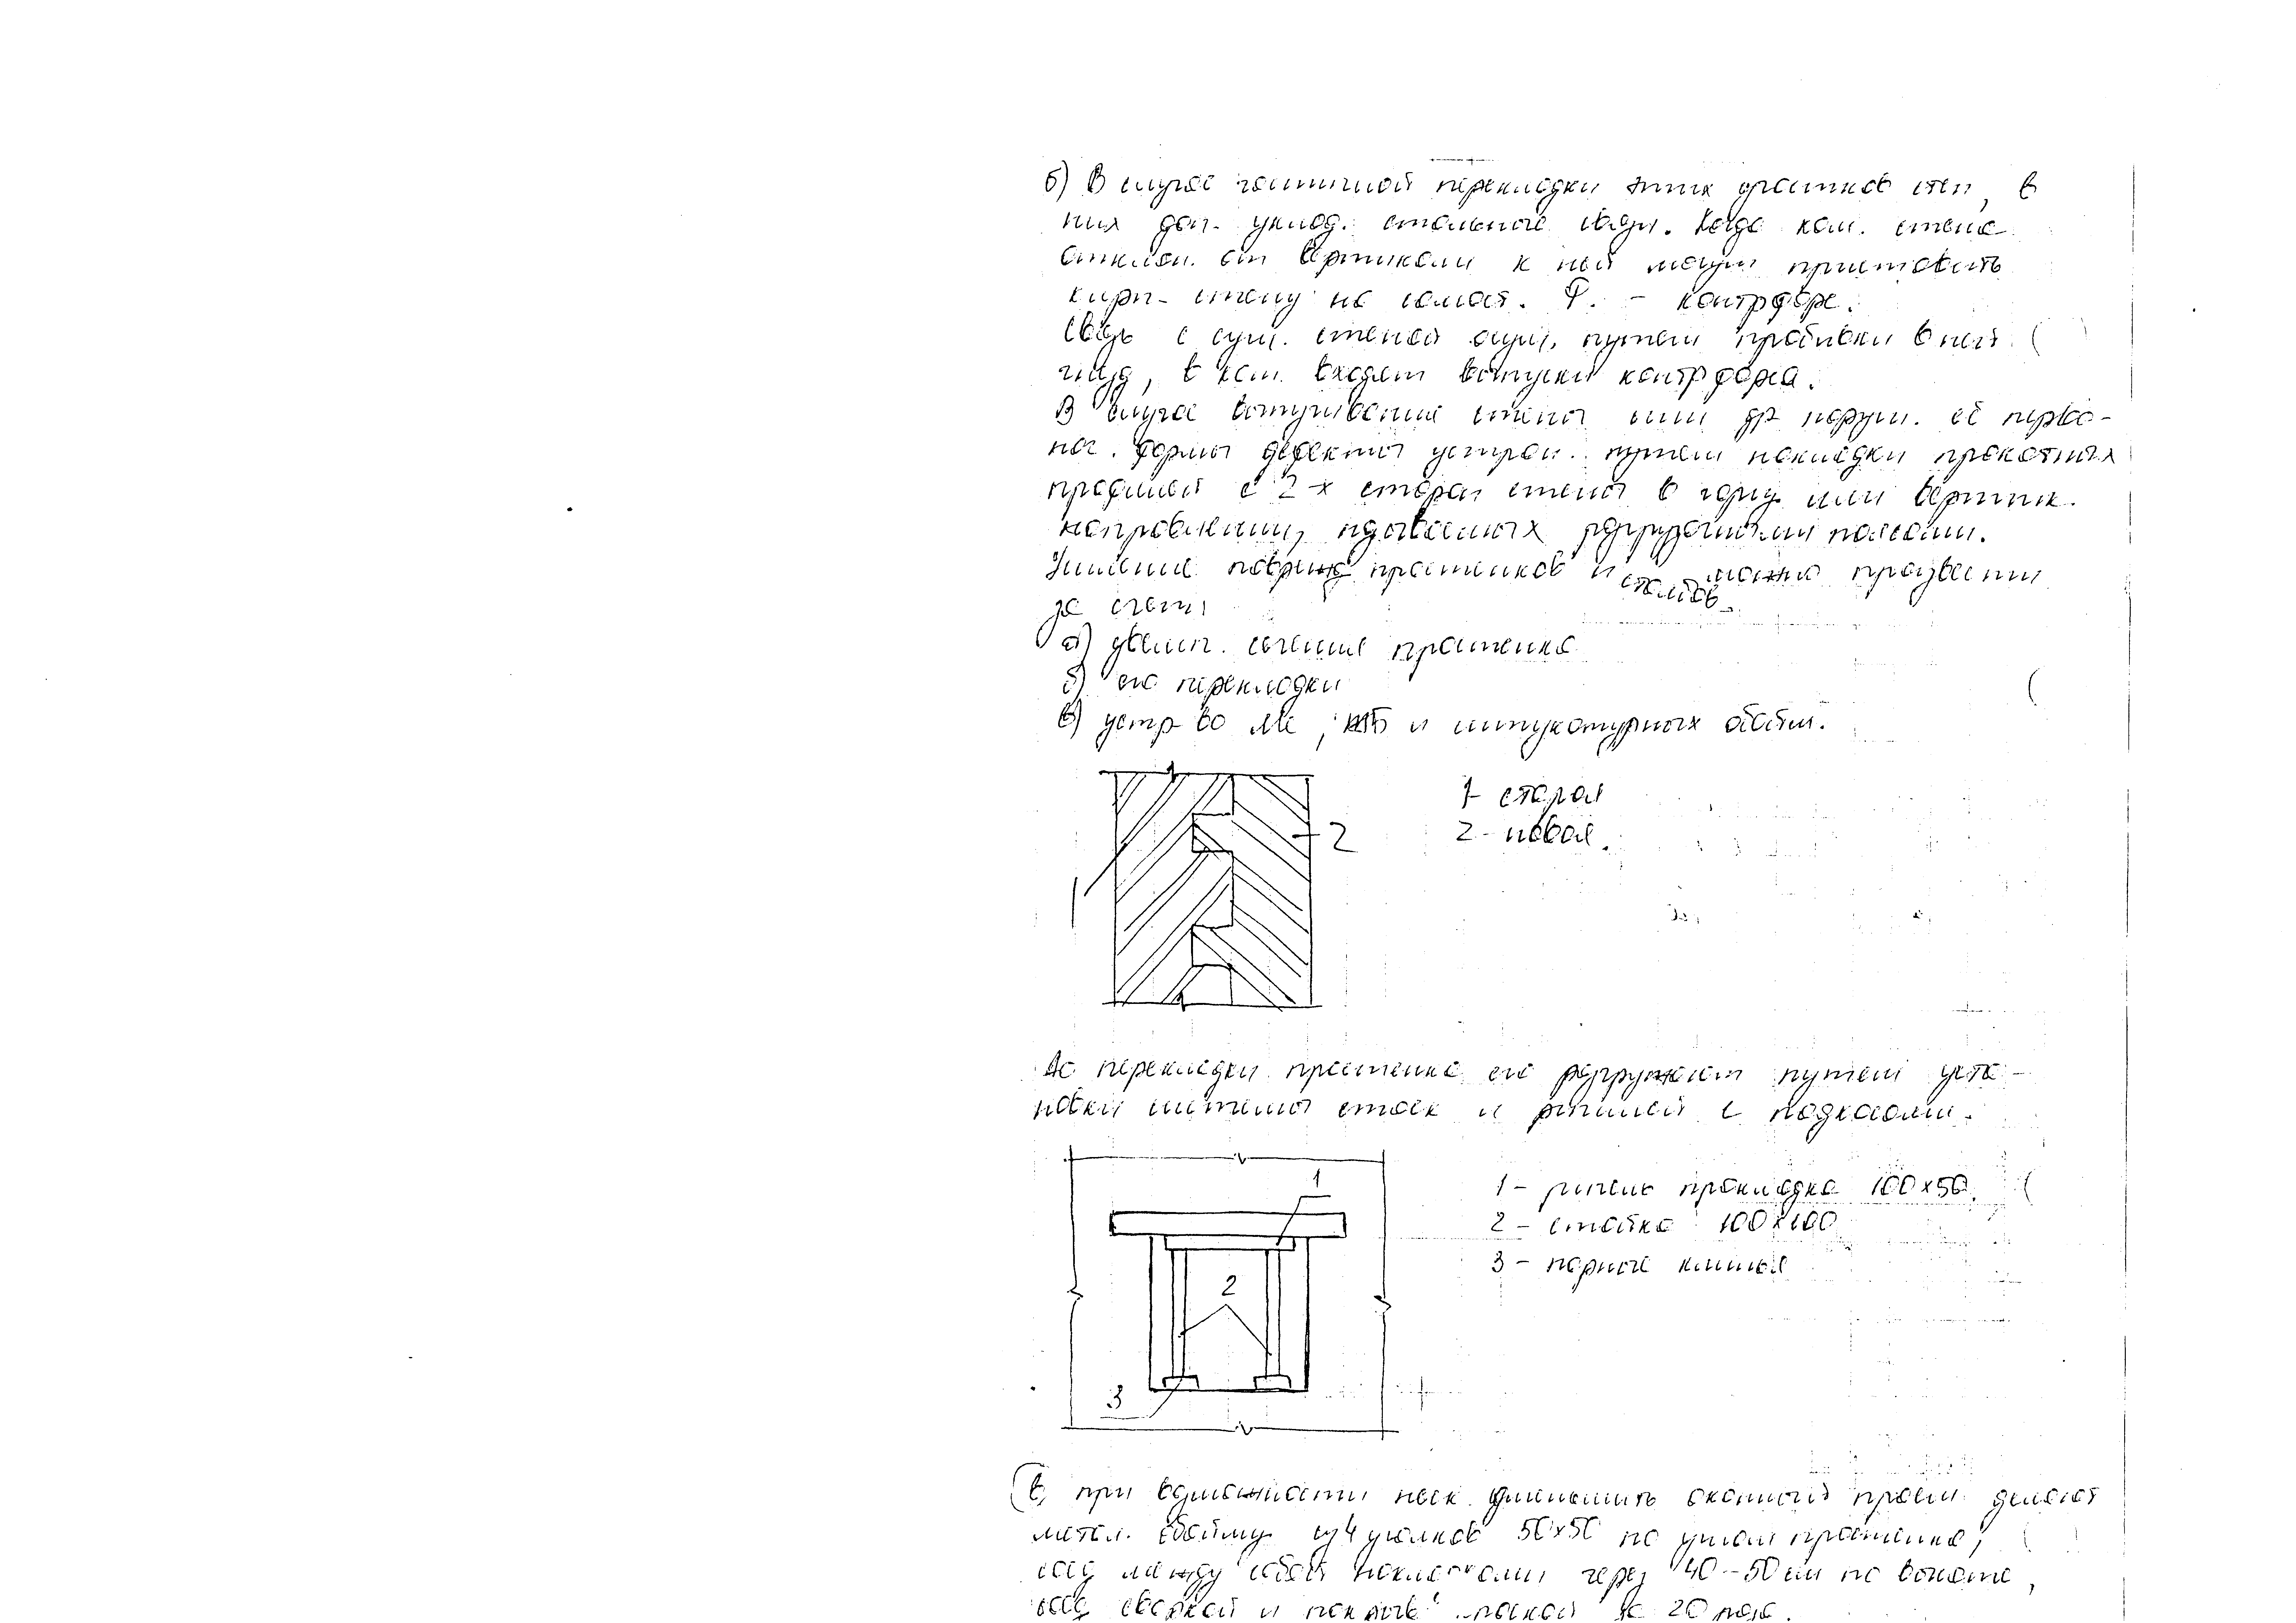 б) В случае частичной перекладки этих участков стен, в
них доп. уклад. стальные связи. Когда кам. стена
отклон. от вертикали к ней могут приставить
кирп. стену на самост. Ф. - контрфорс.
Связь с сущ. стеной осущ. путем пробивки в ней
гнёзд, в кот. входят выпуски контрфорса.
В случае выпучивания стены или др наруш. её перво-
нач. формы дефекты устран. путем накладки прокатных
профилей с 2-х сторон стены в гориз. или вертик.
направлении,
Усиление поврежд простенков и столбов можно произвести
за счет:
а) увелич. сечение простенка
б) его перекладки
в) устр-во Ме, жб и штукатурных обойм.
1- старая
2- новая
2
1
До перекладки простенка его разгружают путем уста-
новки стоек и ригилей с подкосами.
1
2
3
1 - прокладка 100х50
2 - стойка 100х100
3 - парные клинья
в) при возможности неск. уменьшить оконный проем делают
метал. обойму из 4 уголков 50х50 по углам простенка,
соед между собой через 40-50 см по высоте,
соед сваркой и